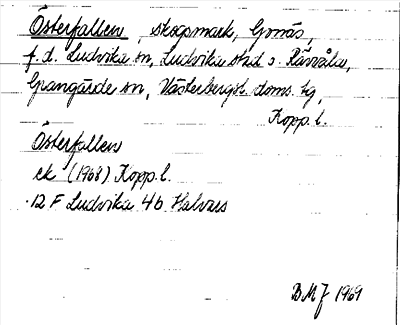 Österfallen, skogsmark, Gonäs,
f.d. Ludvika sn, Ludvika stad o. Räfvåla,
Grangärde sn, Västerbergsl. doms. tg,
Kopp. l.
Österfallen
ek (1968) Kopp. l.
12 F Ludvika 4b Halvars
BMJ 1969